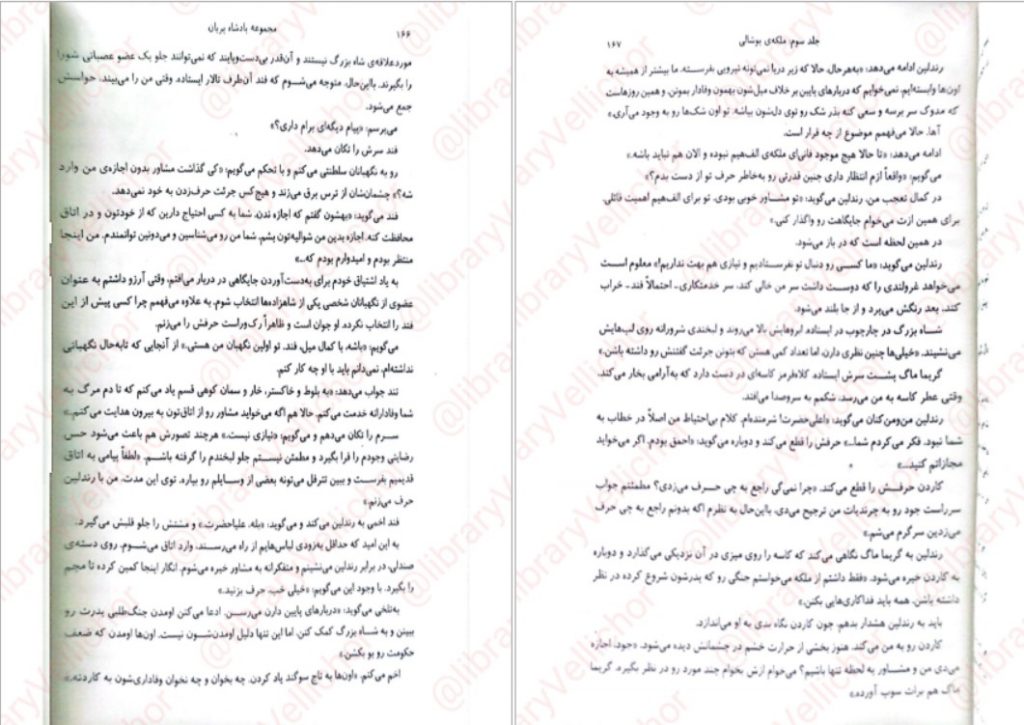 ۱۶۶
مجموعه پادشاه پریان
موردعلاقه‌ی شاه بزرگ نیستند و آن‌قدر بی‌دست‌وپایند که نمی‌توانند جلو یک عضو عصبانی شورا
را بگیرند. بااین‌حال، متوجه می‌شوم که فند آن‌طرف تالار ایستاده. وقتی من را می‌بیند، حواسش
جمع می‌شود.
می‌پرسم: «پیام دیگه‌ای برام داری؟»
فند سرش را تکان می‌دهد.
رو به نگهبانان سلطنتی می‌کنم و با تحکم می‌گویم: «کی گذاشت مشاور بدون اجازه‌ی من وارد
شه؟» چشمان‌شان از ترس برق می‌زند و هیچ‌کس جرئت حرف‌زدن به خود نمی‌دهد.
فند می‌گوید: «بهشون گفتم که اجازه ندن. شما به کسی احتیاج دارین که از خودتون و در اتاق
محافظت کنه. اجازه بدین من شوالیه‌تون بشم. شما من رو می‌شناسین و می‌دونین توانمندم. من اینجا
منتظر بودم و امیدوارم بودم که...»
به یاد اشتیاق خودم برای به‌دست‌آوردن جایگاهی در دربار می‌افتم، وقتی آرزو داشتم به عنوان
عضوی از نگهبانان شخصی یکی از شاهزاده‌ها انتخاب شوم. به علاوه می‌فهمم چرا کسی پیش از این
فند را انتخاب نکرده. او جوان است و ظاهراً رک‌وراست حرفش را می‌زنم.
می‌گویم: «باشه. با کمال میل، فند. تو اولین نگهبان من هستی.» از آنجایی که تابه‌حال نگهبانی
نداشته‌ام، نمی‌دانم باید با او چه کار کنم.
تند جواب می‌دهد: «به بلوط و خاکستر، خار و سمان کوهی قسم یاد می‌کنم که تا دم مرگ به
شما وفادارانه خدمت می‌کنم. حالا هم اگه می‌خواید مشاور رو از اتاق‌تون به بیرون هدایت می‌کنم...»
سرم را تکان می‌دهم و می‌گویم: «نیازی نیست.» هرچند تصورش هم باعث می‌شود حس
رضایتی وجودم را فرا بگیرد و مطمئن نیستم جلو لبخندم را گرفته باشم. «لطفاً پیامی به اتاق
قدیمیم بفرست و ببین تترفل می‌تونه بعضی از وسایلم رو بیاره. توی این مدت، من با رندلین
حرف می‌زنم.»
فند اخمی به رندلین می‌کند و می‌گوید: «بله، علیاحضرت.» و مشتش را جلو قلبش می‌گیرد.
به این امید که حداقل به‌زودی لباس‌هایم از راه می‌رسند، وارد اتاق می‌شوم. روی دسته‌ی
صندلی، در برابر رندلین می‌نشینم و متفکرانه به مشاور خیره می‌شوم. انگار اینجا کمین کرده تا مچم
را بگیرد. با وجود این می‌گویم: «خیلی خب. حرف بزنید.»
به‌تلخی می‌گوید: «دربارهای پایین دارن می‌رسن. ادعا می‌کنن اومدن جنگ‌طلبی پدرت رو
ببینن و به شاه بزرگ کمک کنن، اما این تنها دلیل اومدن‌شون نیست. اون‌ها اومدن که ضعف
حکومت رو بو بکشن.»
اخم می‌کنم. «اون‌ها به تاج سوگند یاد کردن. چه بخوان و چه نخوان وفاداری‌شون به کاردنه.»
جلد سوم: ملکه‌ی پوشالی
۱۶۷
رندلین ادامه می‌دهد: «به‌هرحال، حالا که زیر دریا نمی‌تونه نیرویی بفرسته، ما بیشتر از همیشه به
اون‌ها وابسته‌ایم. نمی‌خوایم که دربارهای پایین بر خلاف میل‌شون بهمون وفادار بمونن. و همین روزهاست
که مدوک سر برسه و سعی کنه بذر شک رو توی دل‌شون بپاشه. تو اون شک‌ها رو به وجود می‌آری.»
آها. حالا می‌فهمم موضوع از چه قرار است.
ادامه می‌دهد: «تا حالا هیچ موجود فانی‌ای ملکه‌ی الف‌هیم نبوده و الان هم نباید باشه.»
می‌گویم: «واقعاً ازم انتظار داری چنین قدرتی رو به‌خاطر حرف تو از دست بدم؟»
در کمال تعجب من، رندلین می‌گوید: «تو مشاور خوبی بودی. تو برای الف‌هیم اهمیت قائلی.
برای همین ازت می‌خوام جایگاهت رو واگذار کنی.»
در همین لحظه است که در باز می‌شود.
رندلین می‌گوید: «ما کسی رو دنبال تو نفرستادیم و نیازی هم بهت نداریم!» معلوم است
می‌خواهد غرولندی را که دوست داشت سر من خالی کند، سر خدمتکاری- احتمالاً فند- خراب
کند. بعد رنگش می‌پرد و از جا بلند می‌شود.
شاه بزرگ در چارچوب در ایستاده. ابروهایش بالا می‌روند و لبخندی شرورانه روی لب‌هایش
می‌نشیند. «خیلی‌ها چنین نظری دارن، اما تعداد کمی هستن که بتونن جرئت گفتنش رو داشته باشن.»
گریما ماگ پشت سرش ایستاده. کلاه‌قرمز کاسه‌ای در دست دارد که به‌آرامی بخار می‌کند.
وقتی عطر کاسه به من می‌رسد، شکمم به سروصدا می‌افتد.
رندلین من‌ومن‌کنان می‌گوید: «اعلی‌حضرت! شرمنده‌ام. کلام بی‌احتیاط من اصلاً در خطاب به
شما نبود. فکر می‌کردم شما...» حرفش را قطع می‌کند و دوباره می‌گوید: «احمق بودم. اگر می‌خواید
مجازاتم کنید...»
کاردن حرفش را قطع می‌کند. «چرا نمی‌گی راجع به چی حرف می‌زدی؟ مطمئنم جواب
سرراست جود رو به چرندیات من ترجیح می‌دی، بااین‌حال به نظرم اگه بدونم راجع به چی حرف
می‌زدین سرگرم می‌شم.»
رندلین به گریما ماگ نگاهی می‌کند که کاسه را روی میزی در آن نزدیکی می‌گذارد و دوباره
به کاردن خیره می‌شود. «فقط داشتم از ملکه می‌خواستم جنگی رو که پدرشون شروع کرده در نظر
داشته باشن. همه باید فداکاری‌هایی بکنن.»
باید به رندلین هشدار بدهم، چون کاردن نگاه بدی به او می‌اندازد.
کاردن رو به من می‌کند. هنوز بخشی از حرارت خشم در چشمانش دیده می‌شود. «جود، اجازه
می‌دی من و مشاور یه لحظه تنها باشیم؟ می‌خوام ازش بخوام چند مورد رو در نظر بگیره. گریما
ماگ هم برات سوپ آورده.»
@libraryVellichor